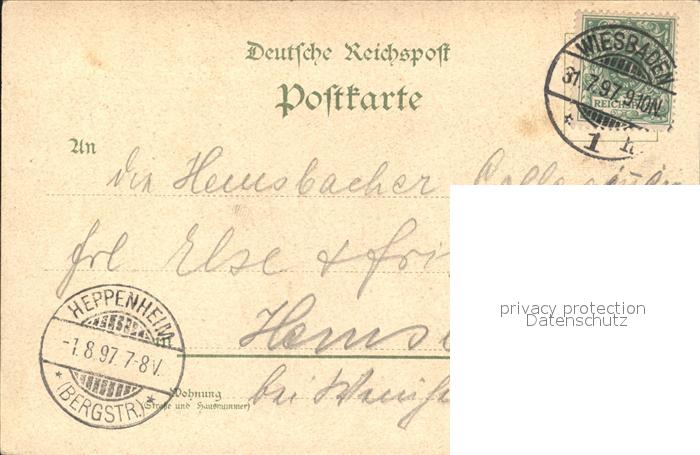 Deutsche Reichspost
Postkarte
WIESBADEN
31.7.97.9-10N
* 1
REICHS
An
die Hemsbacher
Frl Else + Fri
privacy protection
Datenschutz
HEPPENHEIM
-1.8.97.7-8V.
* (BERGSTR.) *
Hems
Wohnung
(Straße und Hausnummer)
bei